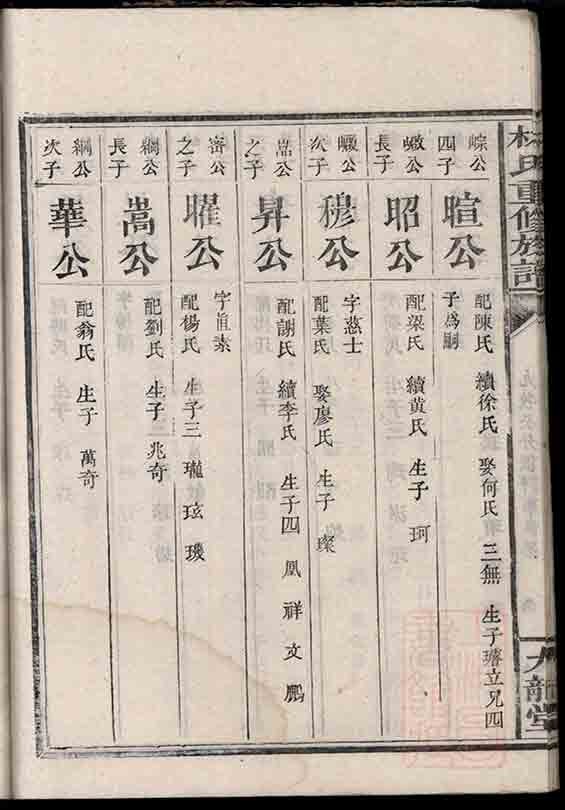 林氏重修族譜
九龍堂
崈公
四子
暄公
配陳氏 續徐氏 娶何氏 三無 生子璿立兄四
子爲嗣
巘公
長子
昭公
配梁氏 續黄氏 生子 珂
巘公
次子
穆公
字蓺士
配葉氏 娶廖氏 生子 璨
之子
昇公
配謝氏 續李氏 生子四 凰 祥 文 鵬
密公
之子
曜公
字眞素
配楊氏 生子三 瓏 玹 璣
綱公
長子
嵩公
配劉氏 生子 兆奇
綱公
次子
華公
配翁氏 生子 萬奇